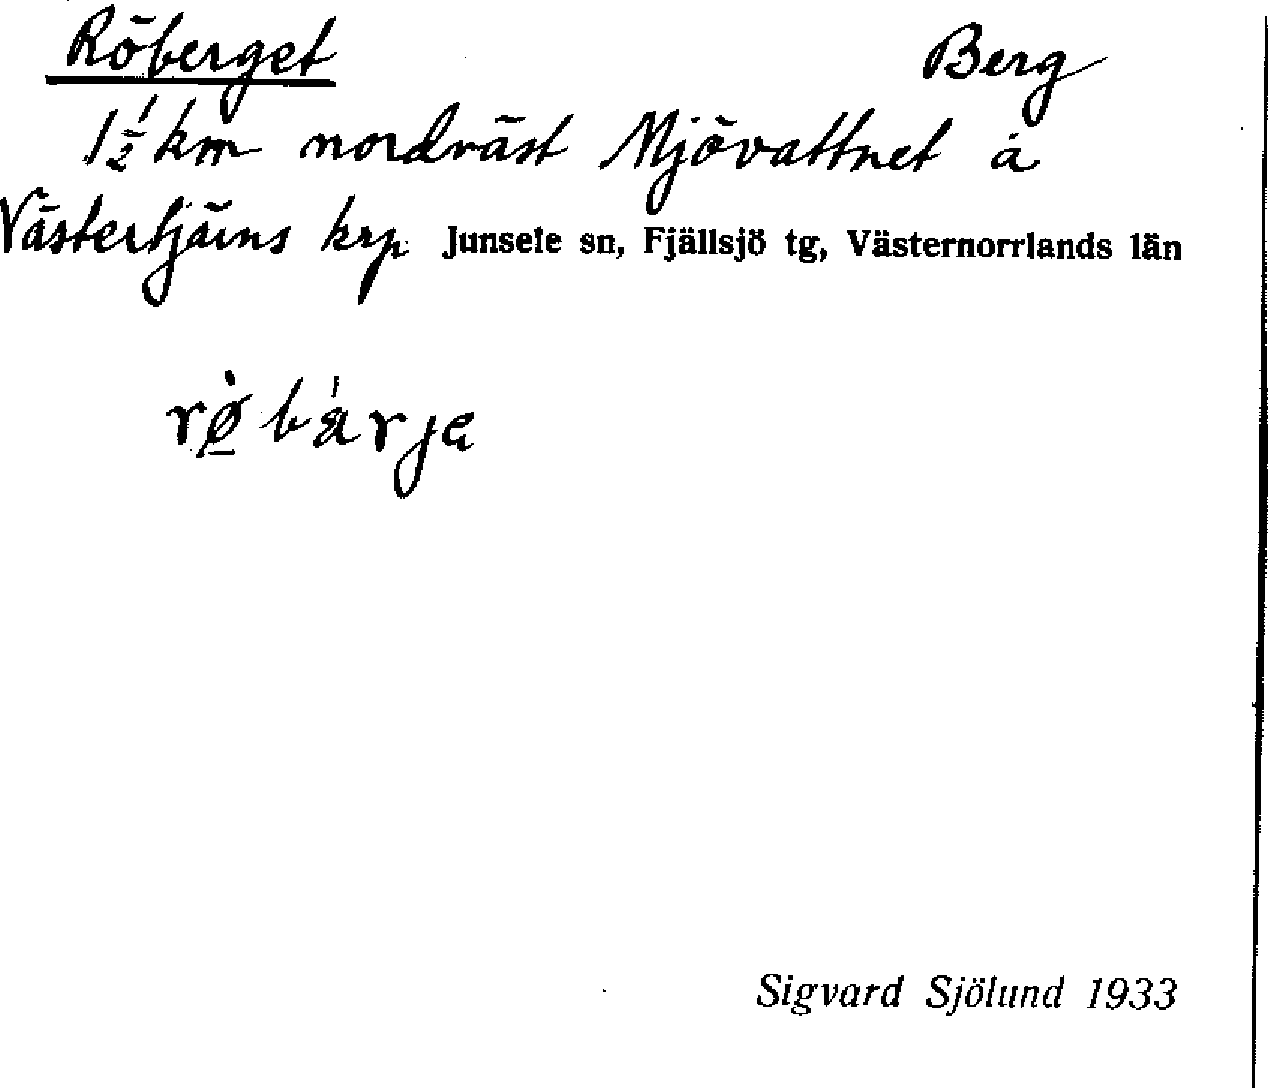 Röberget Berg
1 1/2 km nordväst Mjövattnet å
Västertjärns krp Junsele sn, Fjällsjö tg, Västernorrlands län
rø̀bárja
Sigvard Sjölund 1933